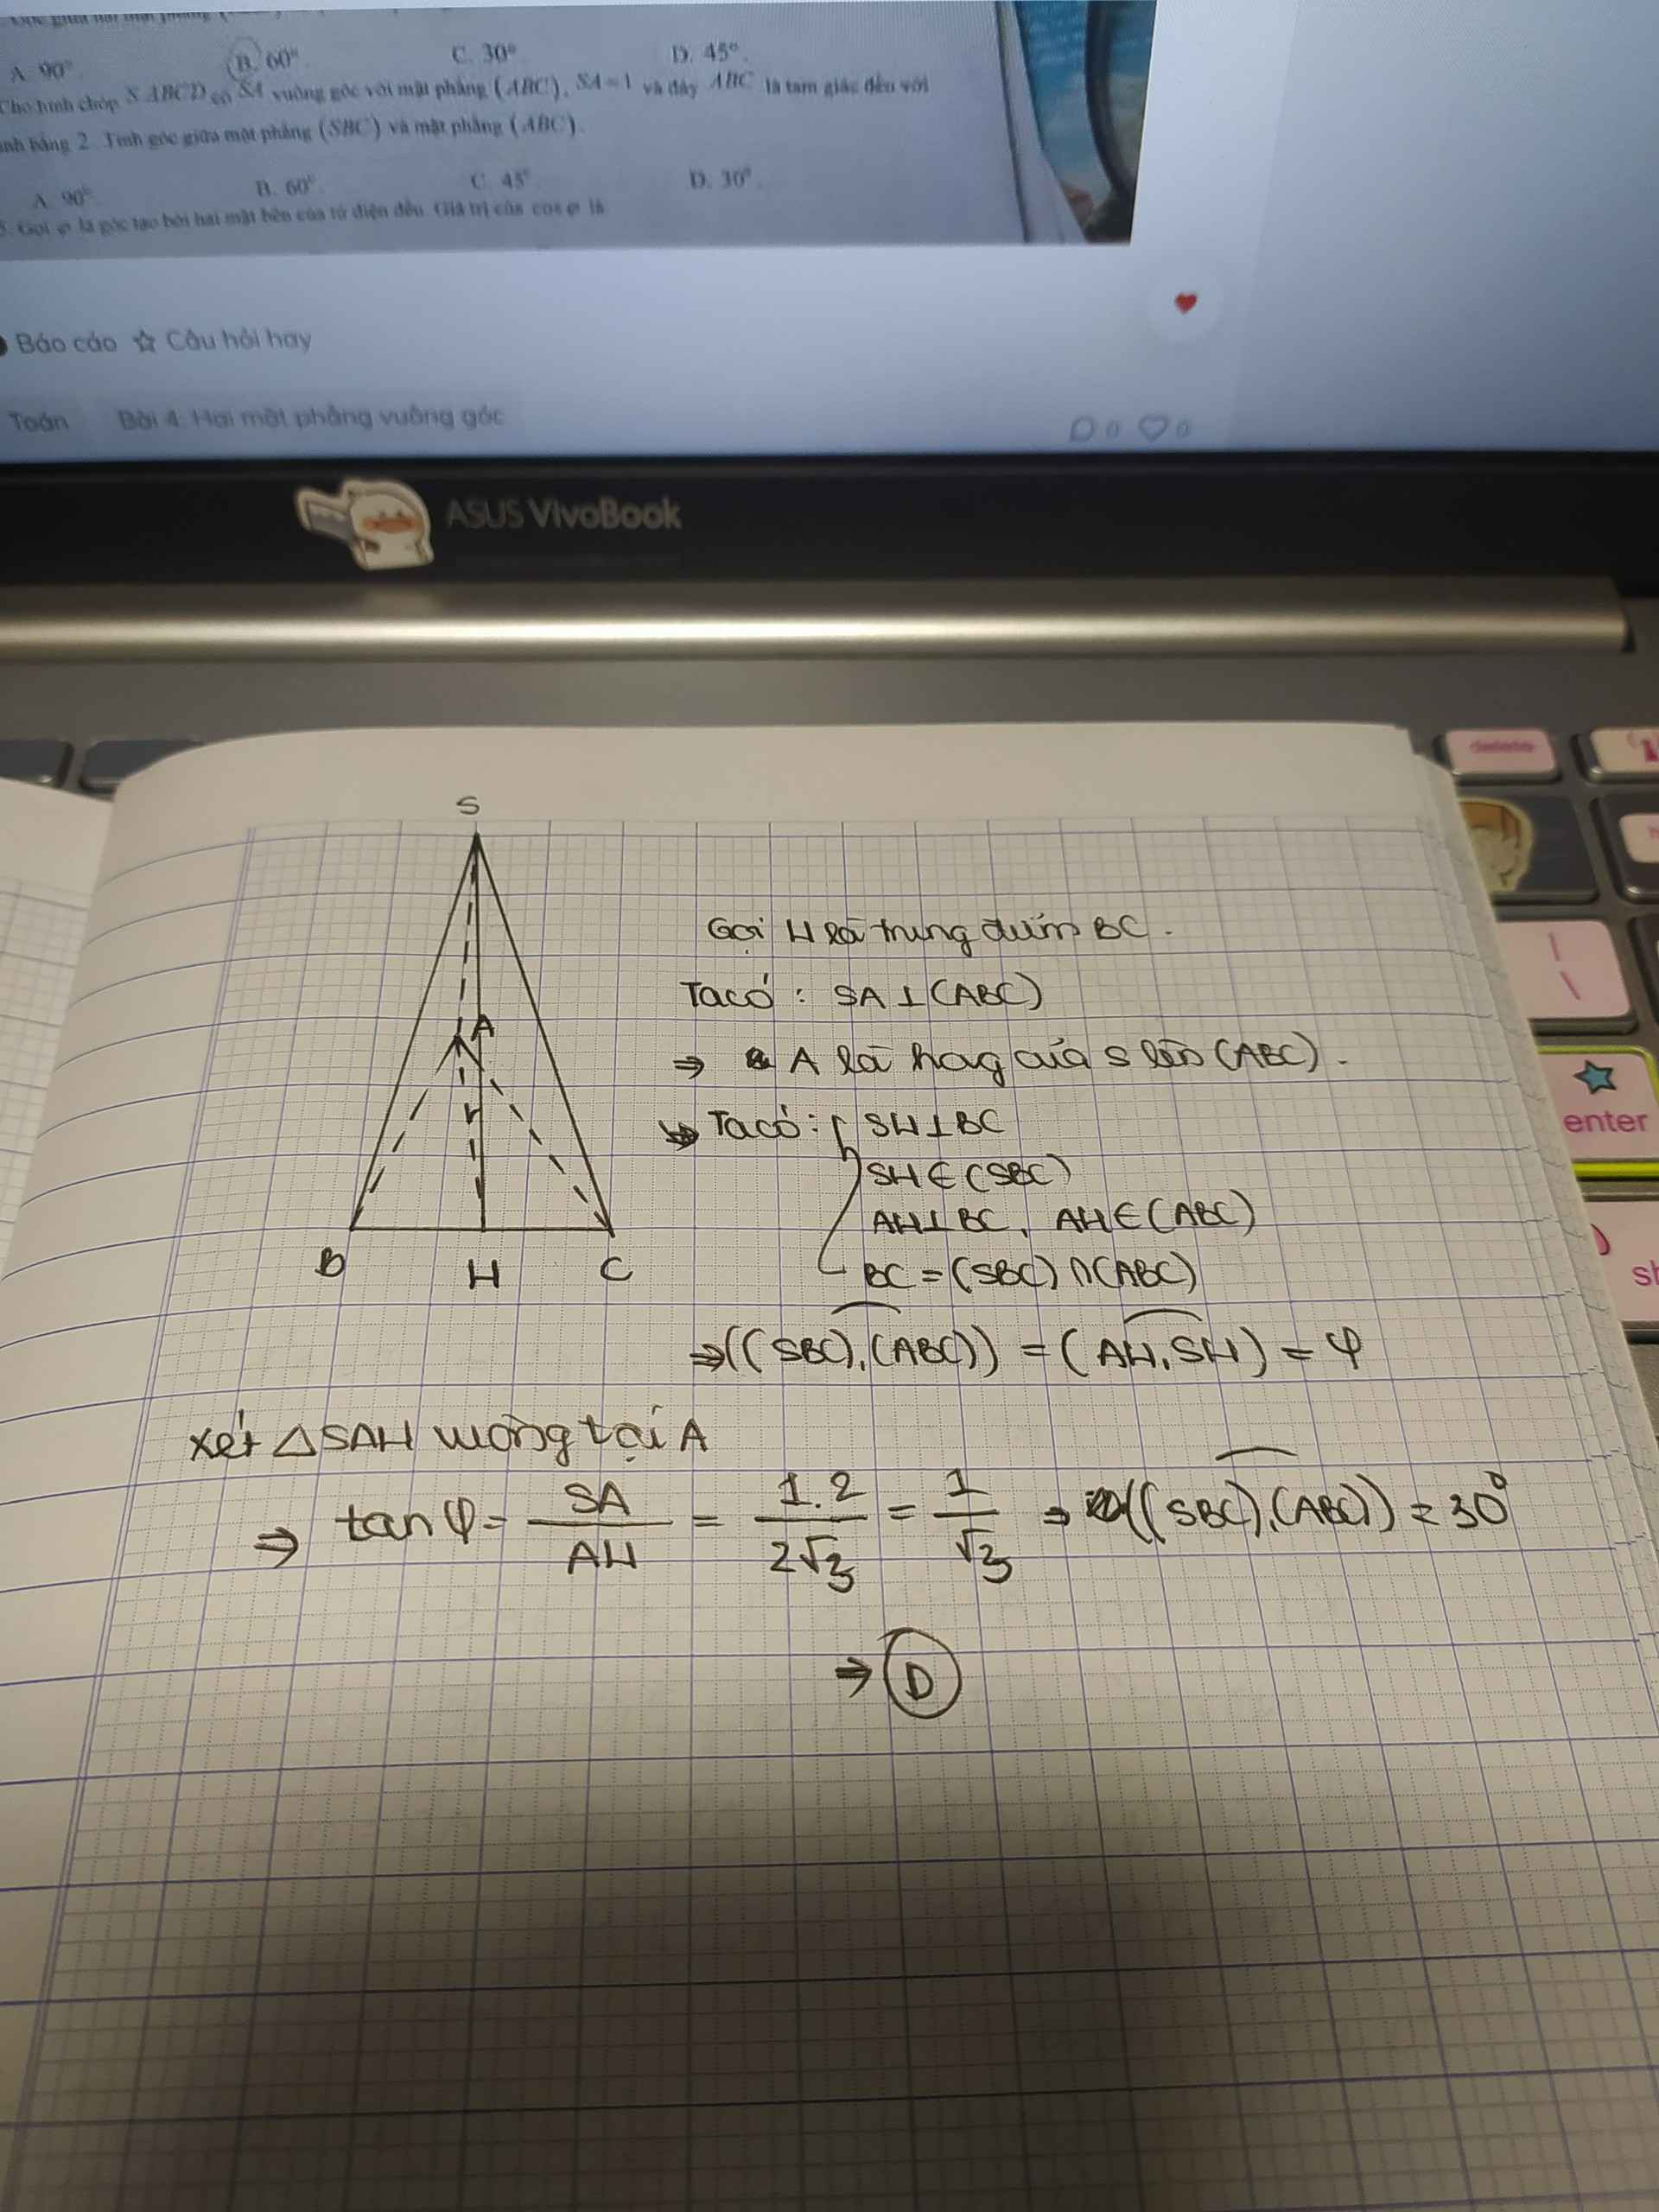 A. 90° B. 60° C. 30° D. 45°.
Cho hình chóp S.ABCD có SA vuông góc với mặt phẳng (ABC), SA=1 và đáy ABC là tam giác đều với
bằng 2. Tính góc giữa mặt phẳng (SBC) và mặt phẳng (ABC).
A. 90° B. 60°. C. 45° D. 30°.
5. Gọi φ là góc tạo bởi hai mặt bên của tứ diện đều. Giá trị của cos φ là
Báo cáo ☆ Câu hỏi hay
Toán Bài 4: Hai mặt phẳng vuông góc
0 0
ASUS VivoBook
delete
enter
S
A
B H C
Gọi H là trung điểm BC.
Ta có : SA ⊥ (ABC)
⇒ A là hcg của S lên (ABC).
Ta có: SH ⊥ BC
SH ∈ (SBC)
AH ⊥ BC, AH ∈ (ABC)
BC = (SBC) ∩ (ABC)
⇒ ((SBC),(ABC)) = (AH,SH) = φ
Xét △SAH vuông tại A
⇒ tan φ = SA/AH = 1.2/2√3 = 1/√3 ⇒ ((SBC),(ABC)) = 30°
⇒ D